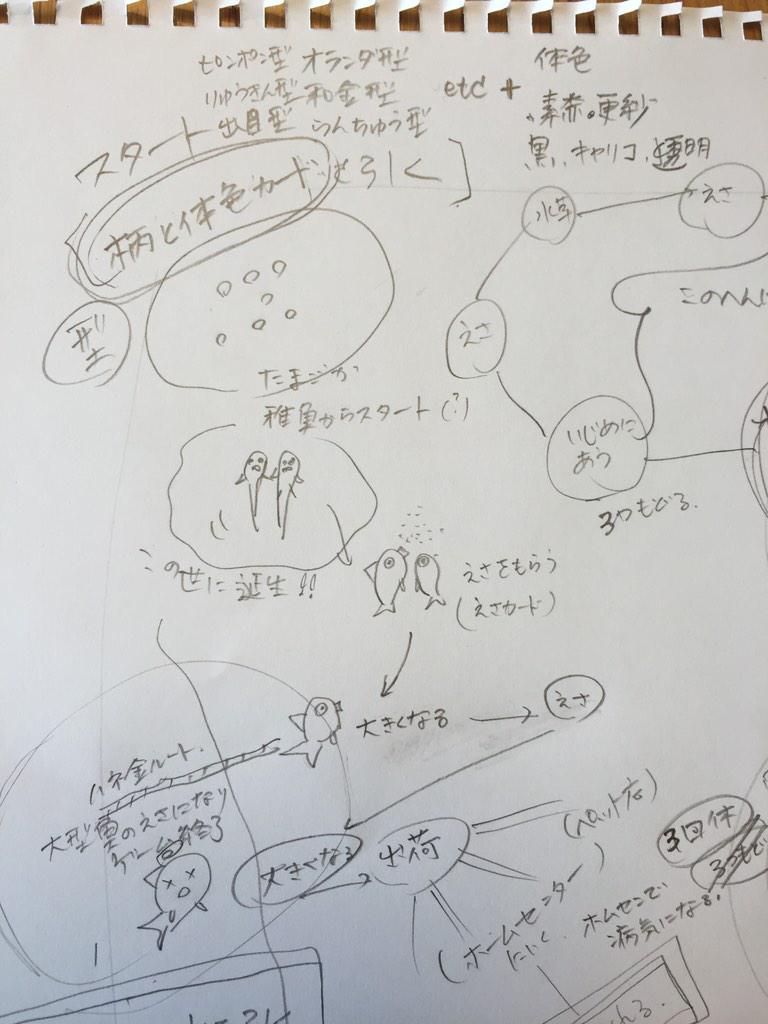 ピンポン型 オランダ型
りゅうきん型 和金型
出目型 らんちゅう型
etc +
体色
素赤 更紗
黒 キャリコ 透明
スタート
柄と体色カード を引く
型
たまごか
稚魚からスタート(?)
この世に誕生!!
えさをもらう
(えさカード)
大きくなる
えさ
ハネ金ルート
大型魚のえさになり
終了
大きくなる
出荷
(ペットショップ
(ホームセンター)
にいく
ホムセンで
病気になる!
3回休
水草
えさ
えさ
このへんに
いじめに
あう
3つもどる